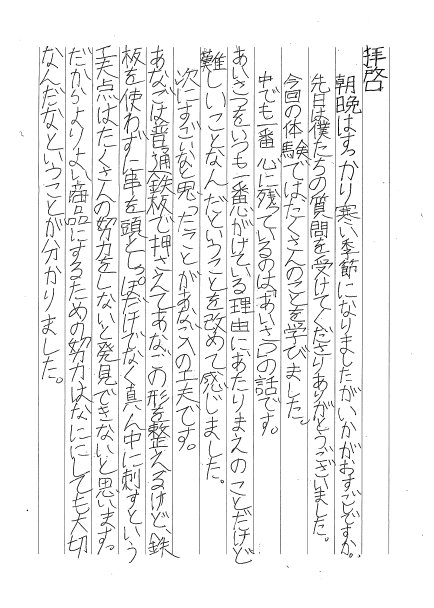 拝啓
朝晩はすっかり寒い季節になりましたがいかがおすごしですか。
先日は僕たちの質問を受けてくださりありがとうございました。
今回の体験ではたくさんのことを学びました。
中でも一番心に残っているのは「あいさつ」の話です。
あいさつをいつも一番心がけている理由にあたりまえのことだけど
難しいことなんだということを改めて感じました。
次にすごいなと思ったことがあなごの工夫です。
あなごは普通鉄板で押さえてあなごの形を整えるけど、鉄
板を使わずに串を頭としっぽだけでなく真ん中に刺すという
工夫点はたくさんの努力をしないと発見できないと思います。
だからよりよい商品にするための努力はなににしても大切
なんだなということが分かりました。